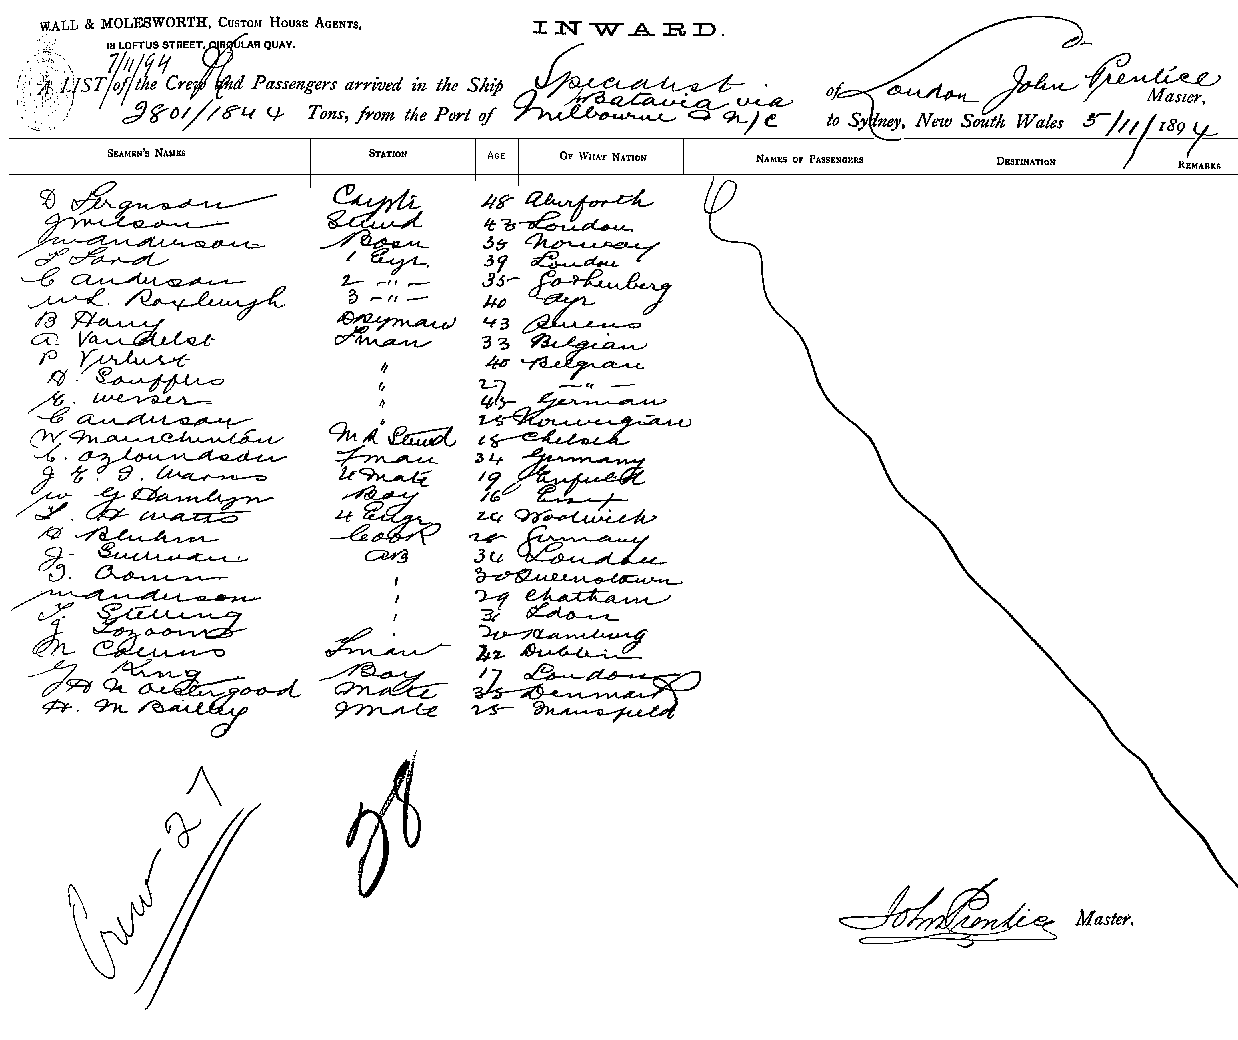 WALL & MOLESWORTH, CUSTOM HOUSE AGENTS,
INWARD.
18 LOFTUS STREET, CIRCULAR QUAY.
7/11/94
A LIST of the Crew and Passengers arrived in the Ship Specialist of London John Prentice Master,
2801/1844 Tons, from the Port of Batavia via Melbourne & N/C to Sydney, New South Wales 5/11/1894
SEAMEN'S NAMES STATION AGE OF WHAT NATION NAMES OF PASSENGERS DESTINATION REMARKS
D Ferguson 48
J Wilson Steward London
J W Anderson Bosn 35 Norway
Ford 1 Egr. 39 London
C Anderson 2 -"- 35 Gothenberg
W L. Roxburgh 3 -"- 40 Ayr
B Harry Dkyman 43
A. Vandelst Fman 33 Belgian
P Verlust " 40 Belgian
" 27 -"-
" 45 German
C Anderson " 25 Norwegian
W Mainchinton M R Steward 18 Chelsea
C. Fman 34 Germany
J E. J. 4 Mate 19 Enfield
W G Hamlyn Boy 16 Essex
L. H Watts 4 Engr 24 Woodwich
H Bluhm Cook Germany
J. Sullivan AB 34 London
30 Queenstown
W Anderson 29 Chatham
T. Stelling
J. 20 Hamburg
M Collins Fman 42 Dublin
G King Boy 17 London
J H N Oestergood Mate 35 Denmark
H. M Bailey 2 Mate 25 Mansfield
Crew 27
28
John Prentice Master.